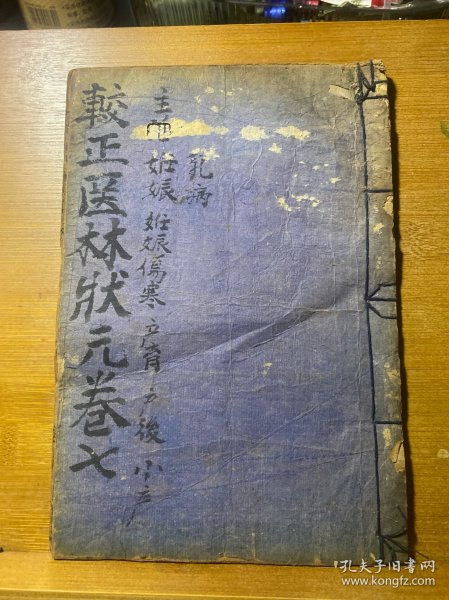 乳病
主 妊娠 妊娠傷寒 产育 产後 小产
較正医林狀元卷七
孔夫子旧书网
www.kongfz.com